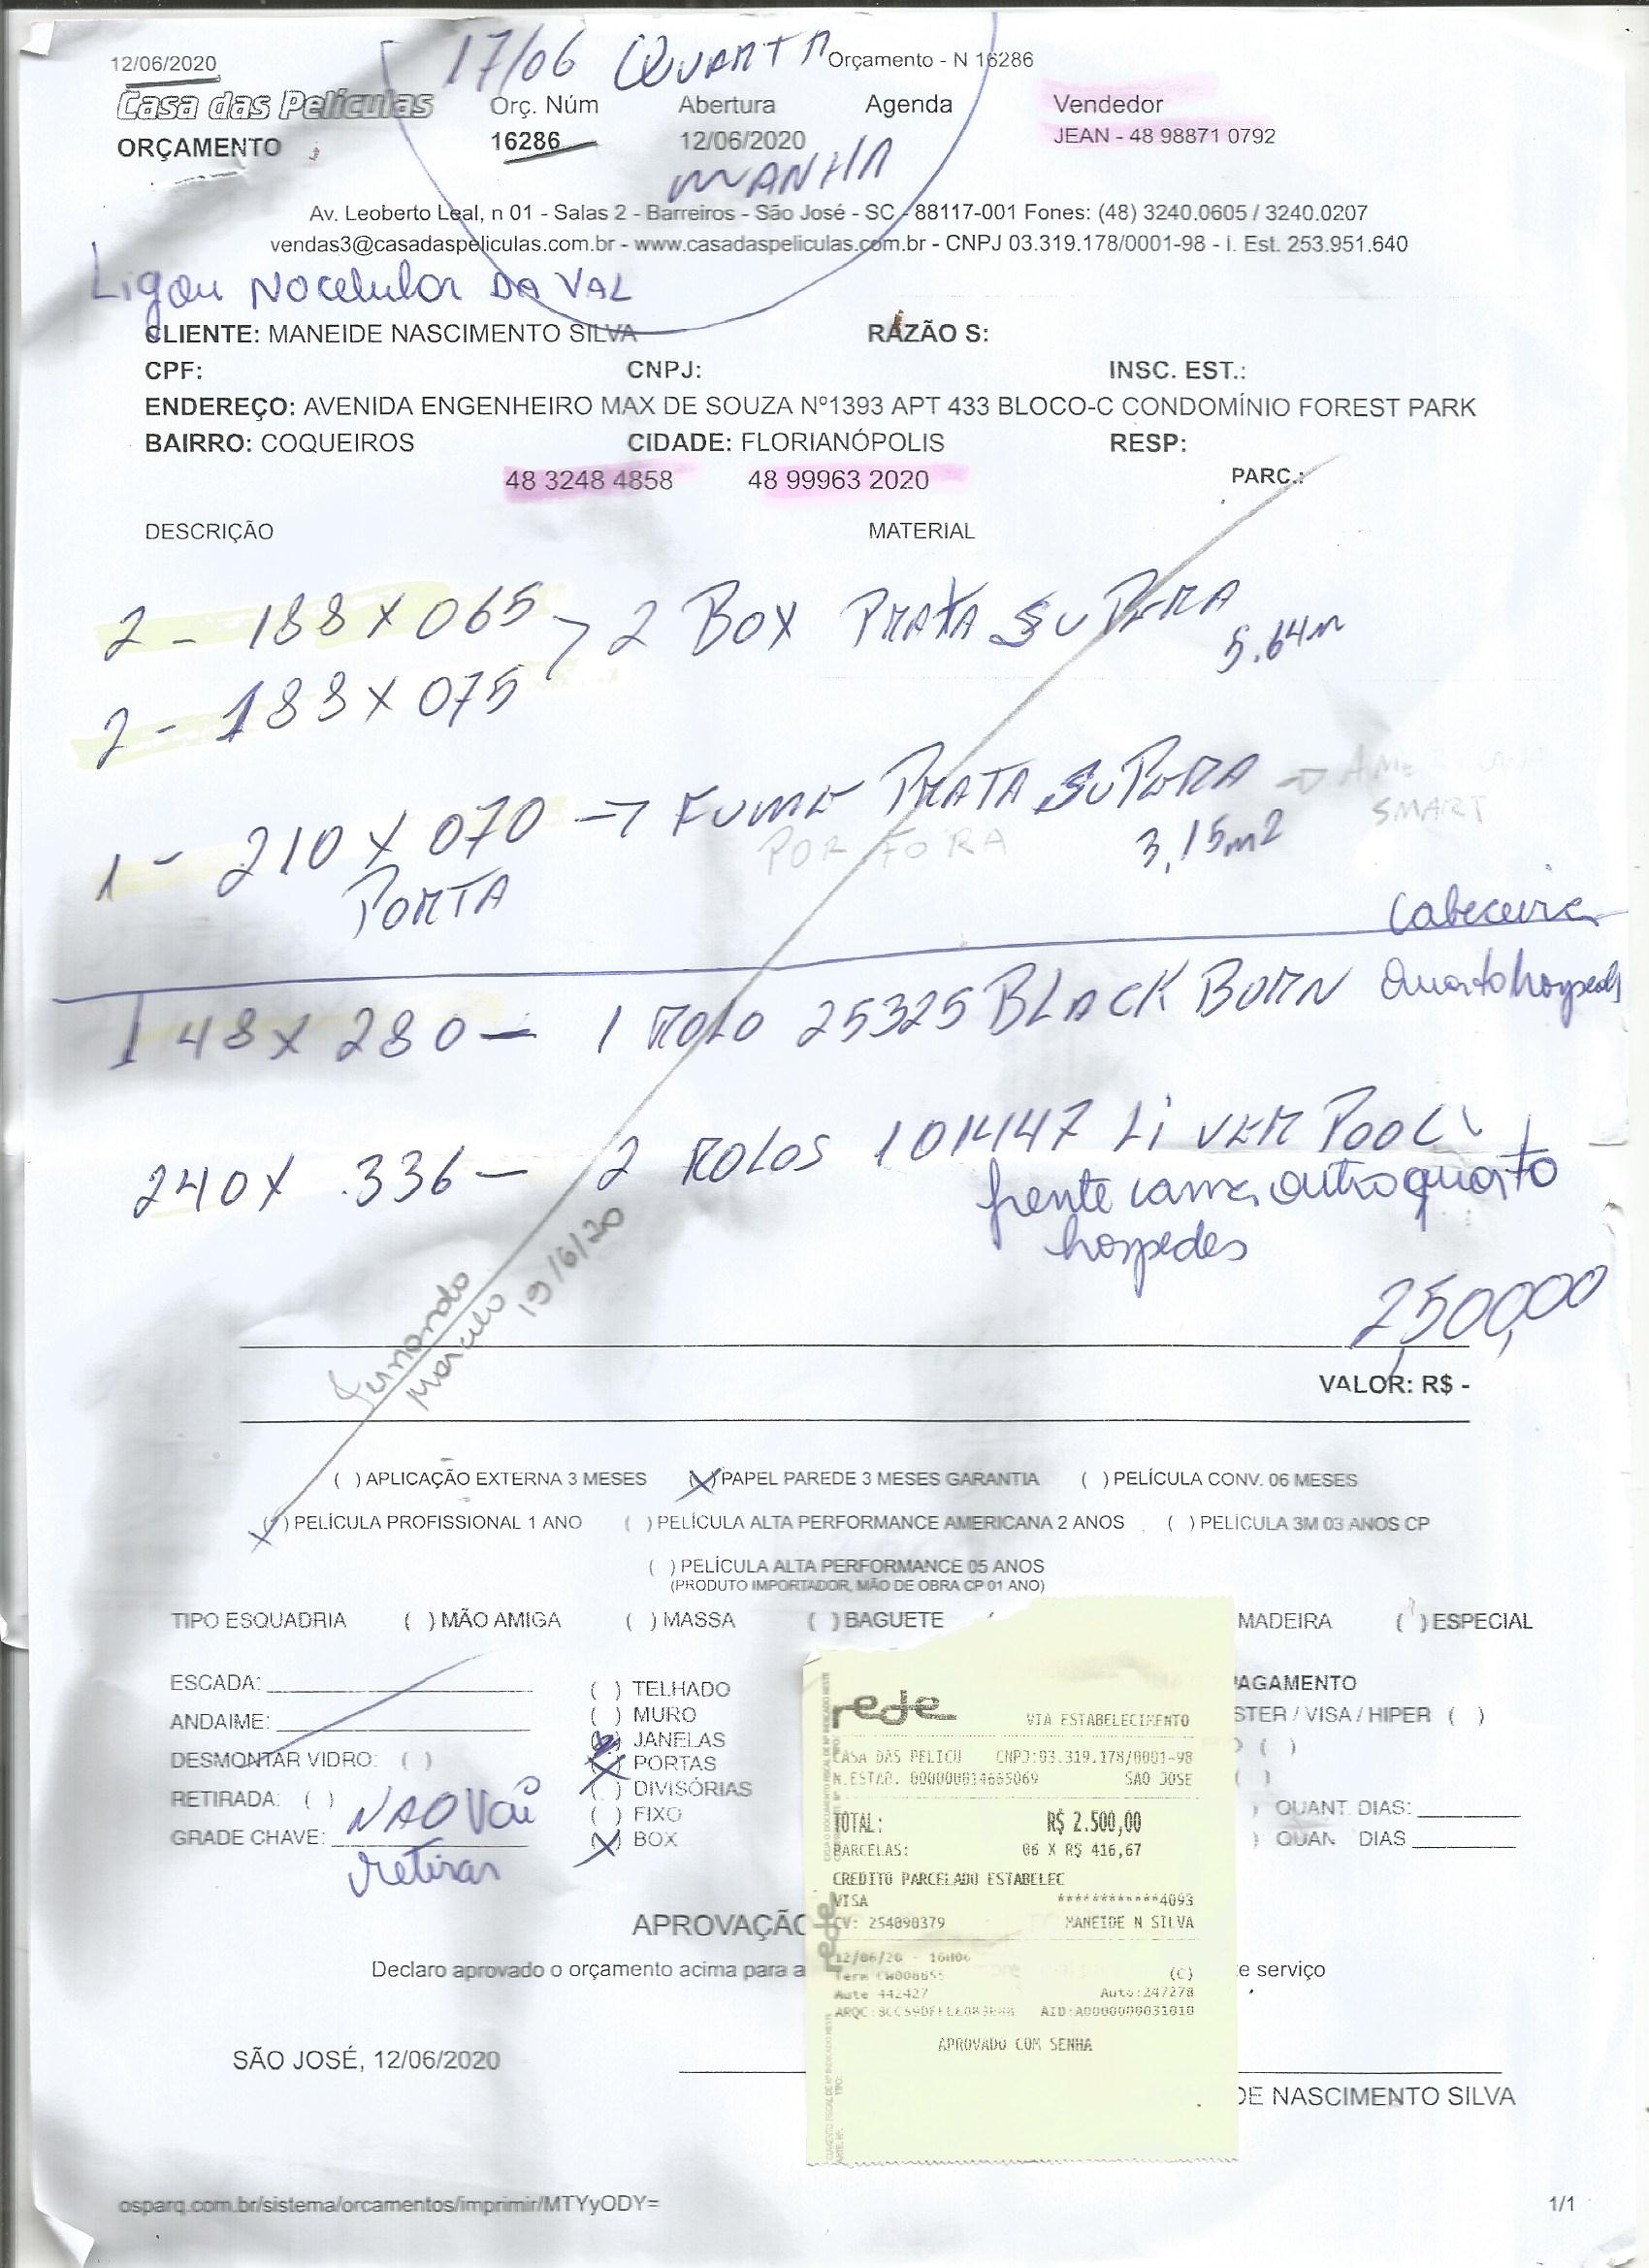 12/06/2020
17/06 QUARTA
Orçamento - N 16286
Casa das Películas
Orç. Núm Abertura Agenda Vendedor
ORÇAMENTO 16286 12/06/2020 JEAN - 48 98871 0792
MANHA
Av. Leoberto Leal, n 01 - Salas 2 - Barreiros - São José - SC - 88117-001 Fones: (48) 3240.0605 / 3240.0207
vendas3@casadaspeliculas.com.br - www.casadaspeliculas.com.br - CNPJ 03.319.178/0001-98 - I. Est. 253.951.640
Ligou No celular DA VAL
CLIENTE: MANEIDE NASCIMENTO SILVA RAZÃO S:
CPF: CNPJ: INSC. EST.:
ENDEREÇO: AVENIDA ENGENHEIRO MAX DE SOUZA Nº1393 APT 433 BLOCO-C CONDOMÍNIO FOREST PARK
BAIRRO: COQUEIROS CIDADE: FLORIANÓPOLIS RESP:
48 3248 4858 48 99963 2020 PARC.:
DESCRIÇÃO MATERIAL
2 - 188 X 065 > 2 BOX PRATA SUPERA
5.64m
2 - 188 X 075
1 - 210 X 070 → FUME PRATA SUPERA →
SMART
POR FORA 3,15m2
PORTA
Cabeceira
148 X 280 - 1 ROLO 25325 BLACK BORN Quarto hospedes
240 X .336 - 2 ROLOS 101447 LIVERPOOL
frente cama outro quarto
hospedes
Marcelo 19/6/20
2,500,00
VALOR: R$ -
( ) APLICAÇÃO EXTERNA 3 MESES (X) PAPEL PAREDE 3 MESES GARANTIA ( ) PELÍCULA CONV. 06 MESES
(X) PELÍCULA PROFISSIONAL 1 ANO ( ) PELÍCULA ALTA PERFORMANCE AMERICANA 2 ANOS ( ) PELÍCULA 3M 03 ANOS CP
( ) PELÍCULA ALTA PERFORMANCE 05 ANOS
(PRODUTO IMPORTADOR, MÃO DE OBRA CP 01 ANO)
TIPO ESQUADRIA ( ) MÃO AMIGA ( ) MASSA ( ) BAGUETE MADEIRA ( ) ESPECIAL
ESCADA: ( ) TELHADO AGAMENTO
ANDAIME: ( ) MURO STER / VISA / HIPER ( )
(X) JANELAS
DESMONTAR VIDRO: ( ) (X) PORTAS
RETIRADA: ( ) ( ) DIVISÓRIAS
NAO Vai
( ) FIXO QUANT. DIAS:
GRADE CHAVE: (X) BOX QUAN DIAS
retirar
rede
VIA ESTABELECIMENTO
CASA DAS PELICU CNPJ:03.319.178/0001-98
N.ESTAB. 000000014665069 SAO JOSE
TOTAL: R$ 2.500,00
PARCELAS: 06 X R$ 416,67
CREDITO PARCELADO ESTABELEC
VISA ************4093
CV: 254090379 MANEIDE N SILVA
12/06/20 - 16H06
Term CW008655 (C)
Aute 442427 Auto:247278
AID:A0000000031010
APROVADO COM SENHA
APROVAÇÃO
Declaro aprovado o orçamento acima para a e serviço
SÃO JOSÉ, 12/06/2020
DE NASCIMENTO SILVA
osparq.com.br/sistema/orcamentos/imprimir/MTYyODY= 1/1